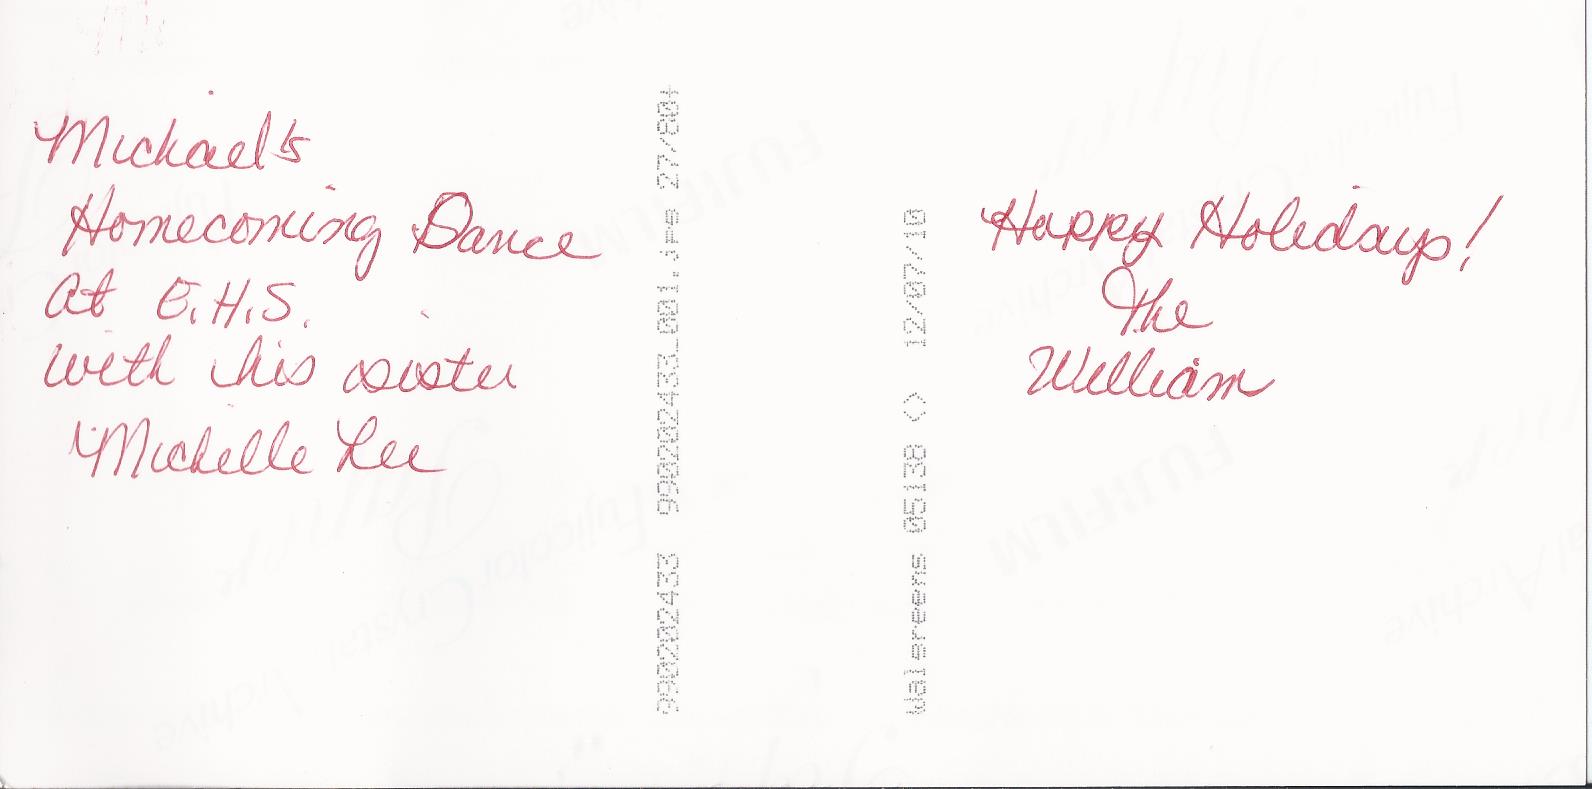 Michael's
Homecoming Dance
At E.H.S.
with his sister
Michelle Lee
990202433 990202433_001.jpg 27/80+
Walgreens 05138 <> 12/07/10
Happy Holidays!
The
William
FUJIFILM
FUJIFILM
Fujicolor Crystal Archive